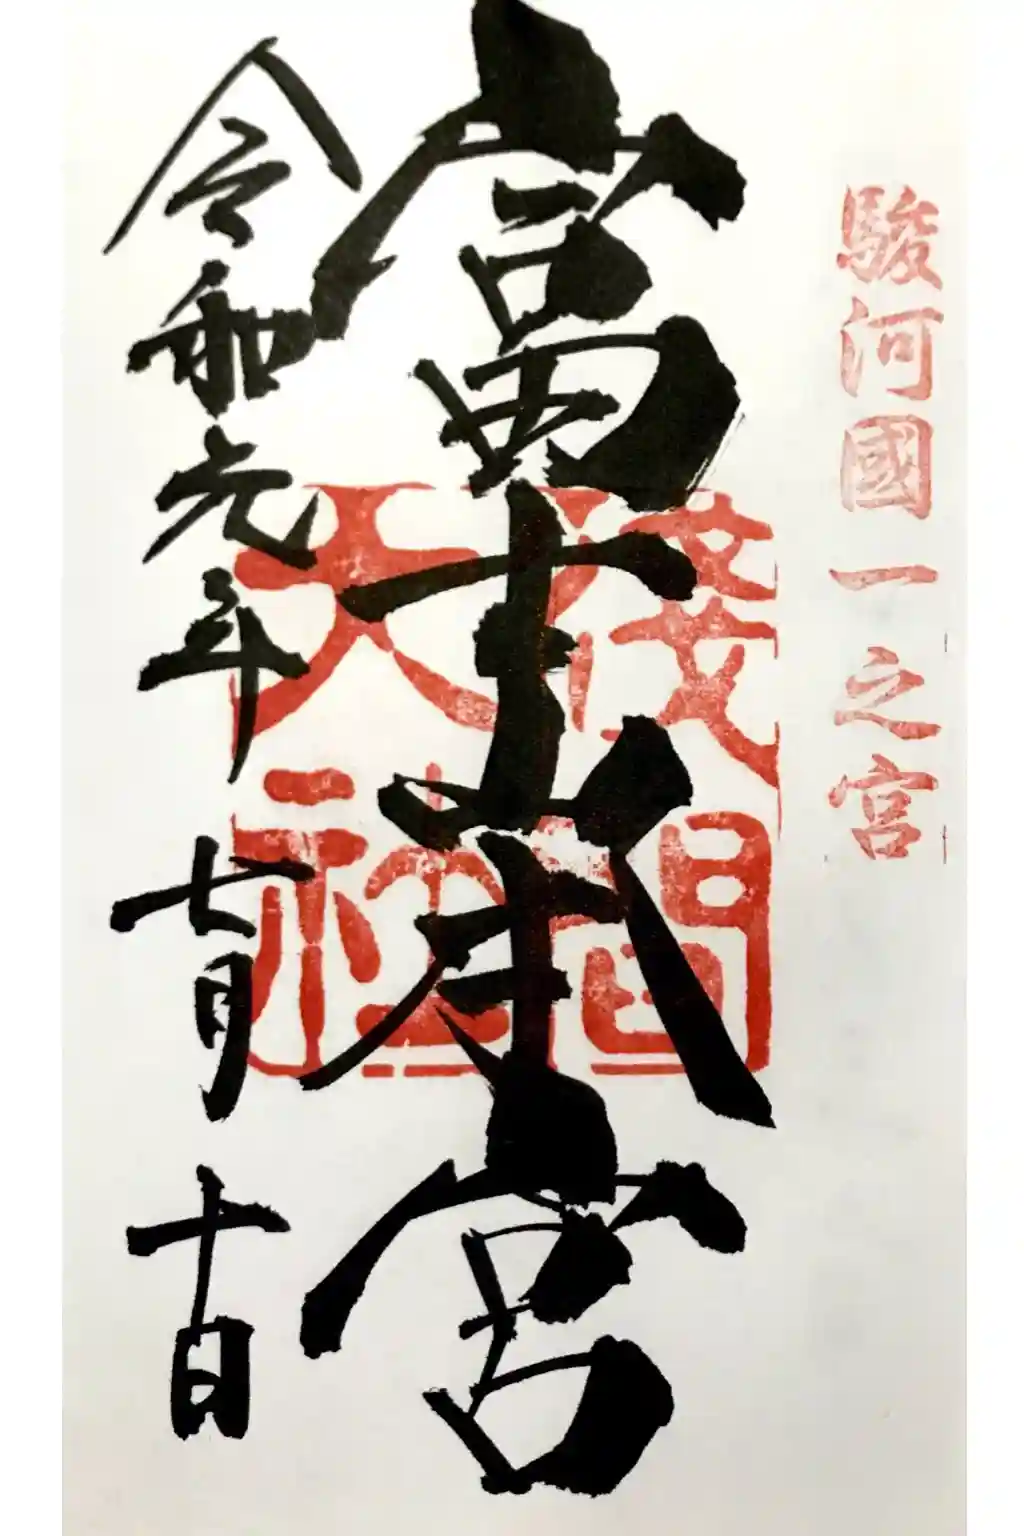 駿河國一之宮
富士本宮
淺間
大社
令和元年七月十日